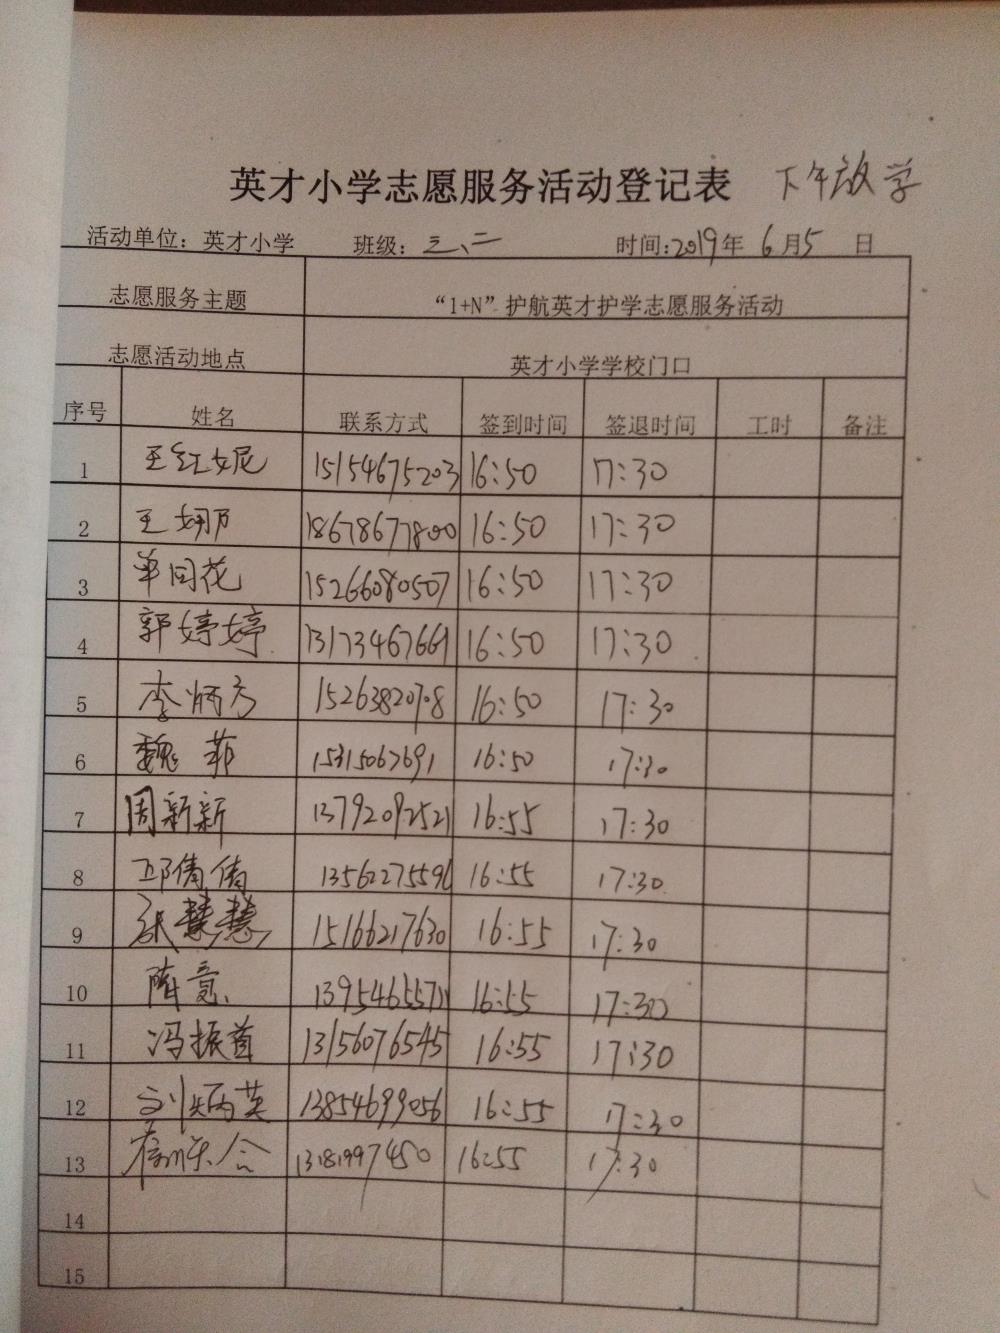 英才小学志愿服务活动登记表 下午放学
活动单位：英才小学 班级：三、二 时间：2019年 6月5 日
志愿服务主题 “1+N”护航英才护学志愿服务活动
志愿活动地点 英才小学学校门口
序号 姓名 联系方式 签到时间 签退时间 工时 备注
1 王红妮 15154675203 16:50 17:30
2 王娜 18678677800 16:50 17:30
3 单同花 15266080507 16:50 17:30
4 郭婷婷 13173467661 16:50 17:30
5 李炳芳 15263820708 16:50 17:30
6 魏菲 15315067691 16:50 17:30
7 周新新 13792092521 16:55 17:30
8 邱倩倩 13562275596 16:55 17:30
9 张慧慧 15166217630 16:55 17:30
10 陈意 16:55 17:30
11 冯振首 13156076545 16:55 17:30
12 刘炳英 13854699056 16:55 17:30
13 13181997450 16:55 17:30
14
15